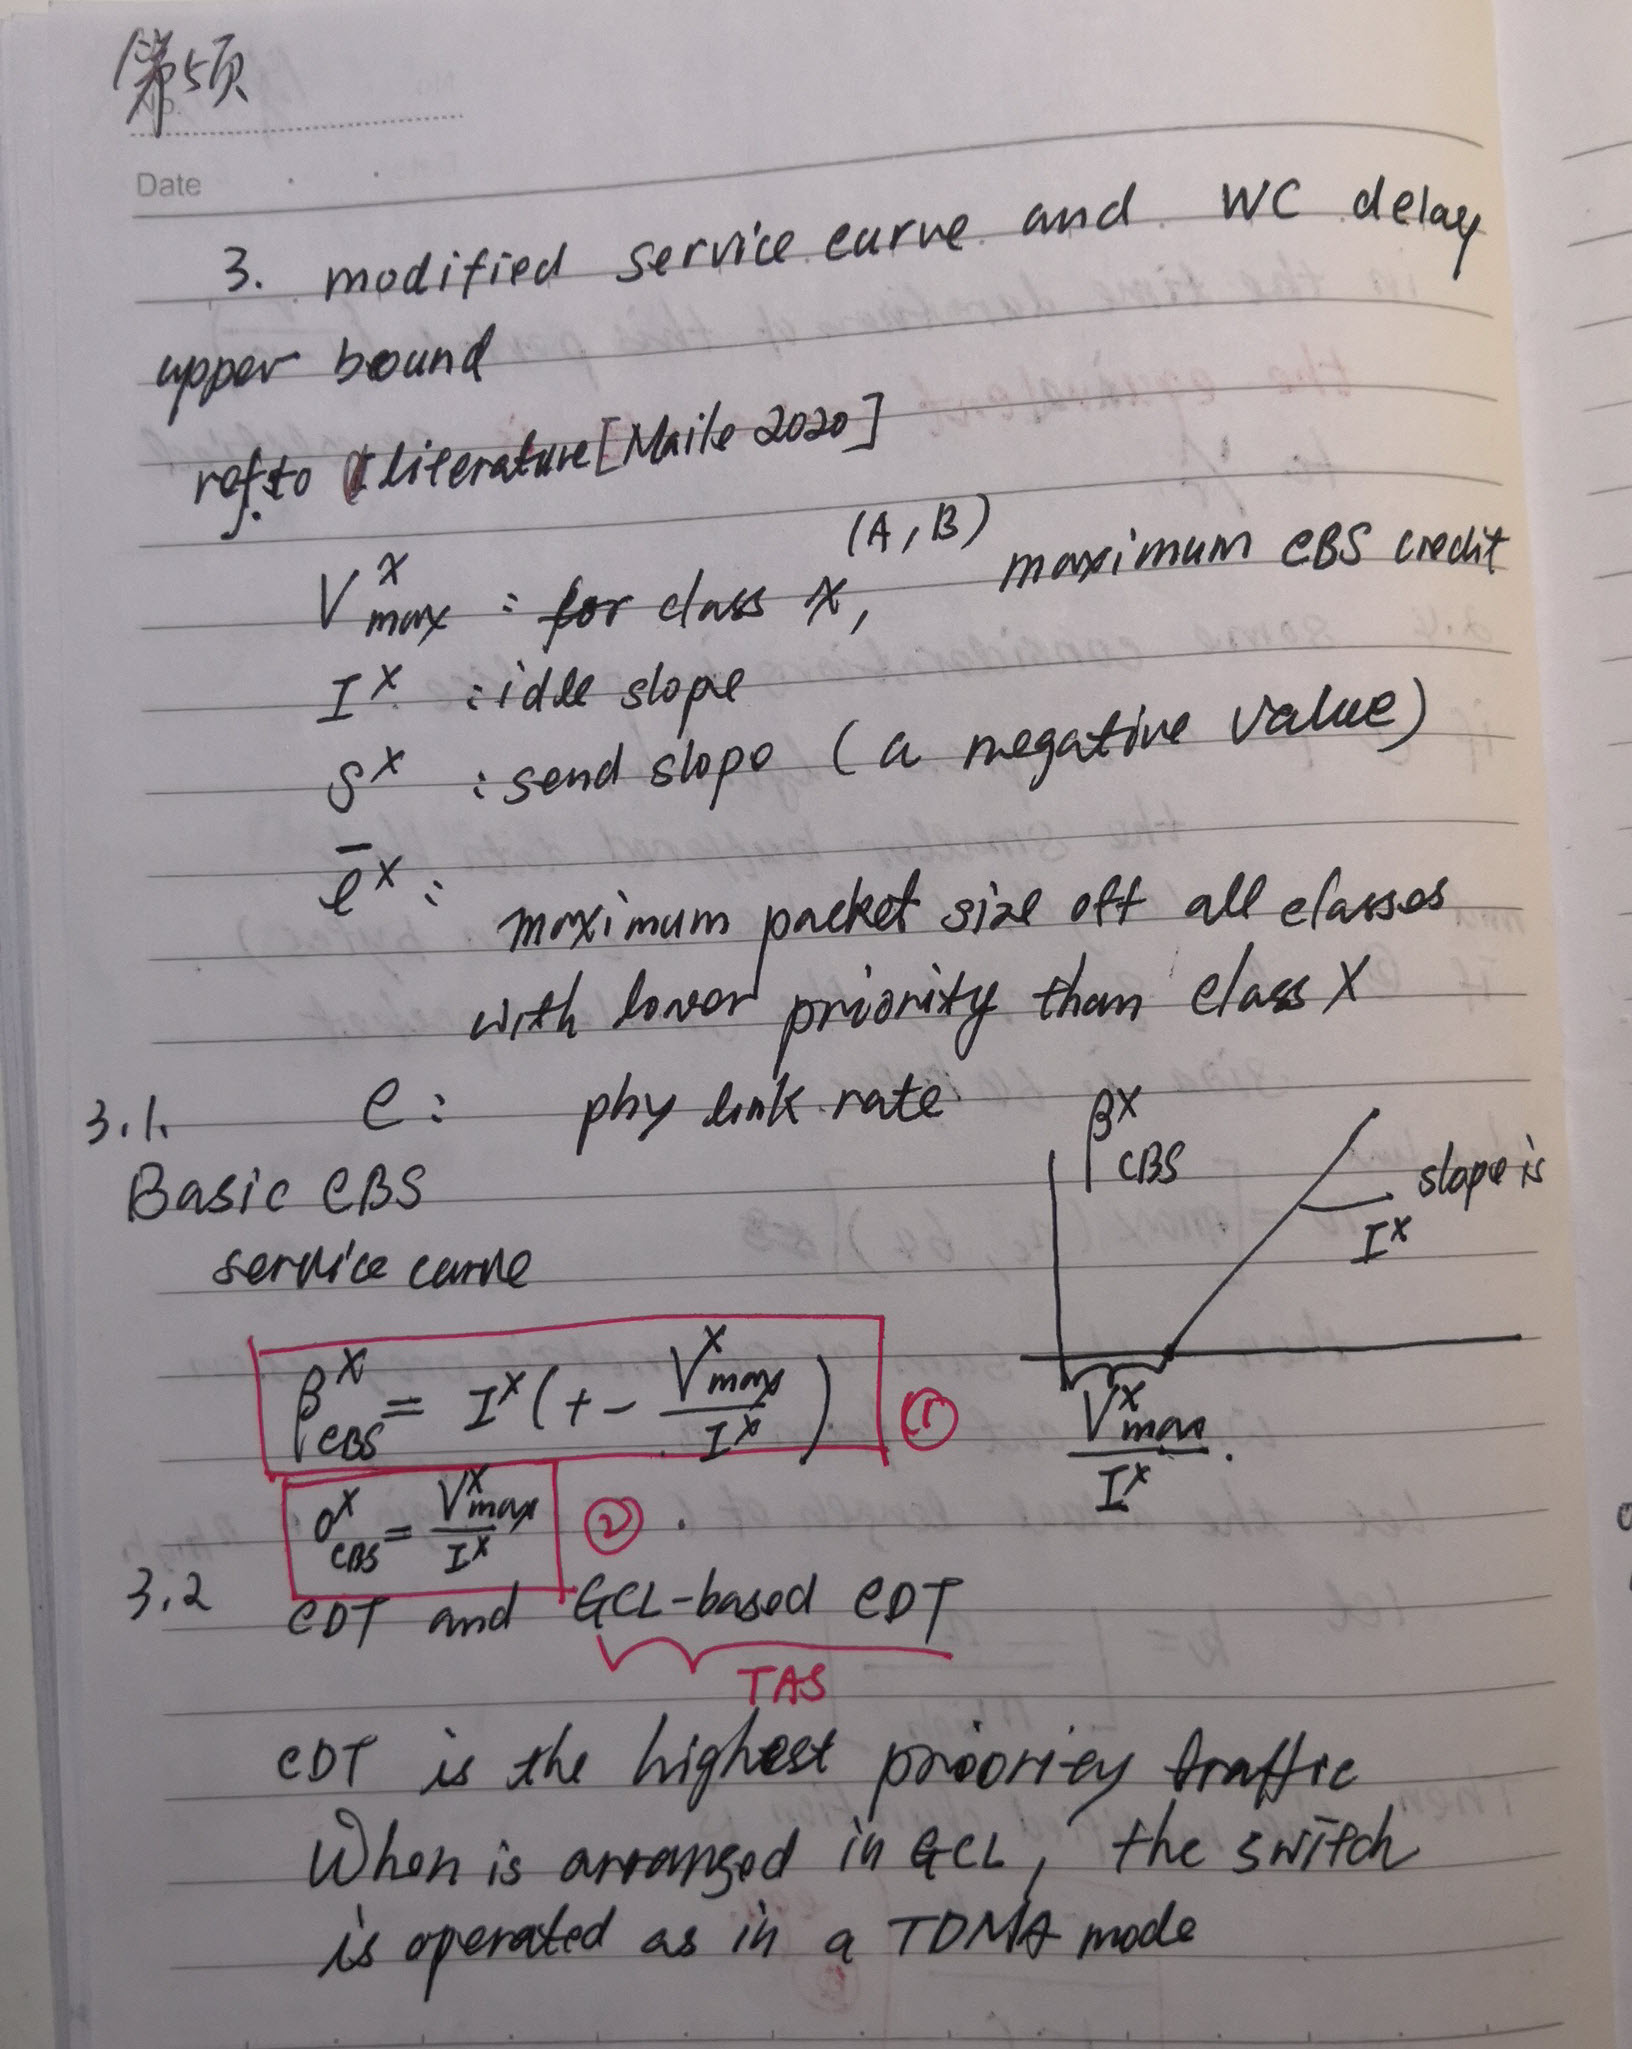 第5页
Date
3. modified service curve and WC delay
upper bound
ref. to literature [Maile 2020]
V^X_max : for class X, (A, B) maximum CBS credit
I^X : idle slope
S^X : send slope (a negative value)
l̄^X : maximum packet size off all classes
with lower priority than class X
3.1. C : phy link rate
Basic CBS
service curve
β^X_CBS
slope is
I^X
V^X_max / I^X
β^X_CBS = I^X (t - V^X_max / I^X) ①
σ^X_CBS = V^X_max / I^X ②
3.2 CDT and GCL-based CDT
TAS
CDT is the highest priority traffic
When is arranged in GCL, the switch
is operated as in a TDMA mode